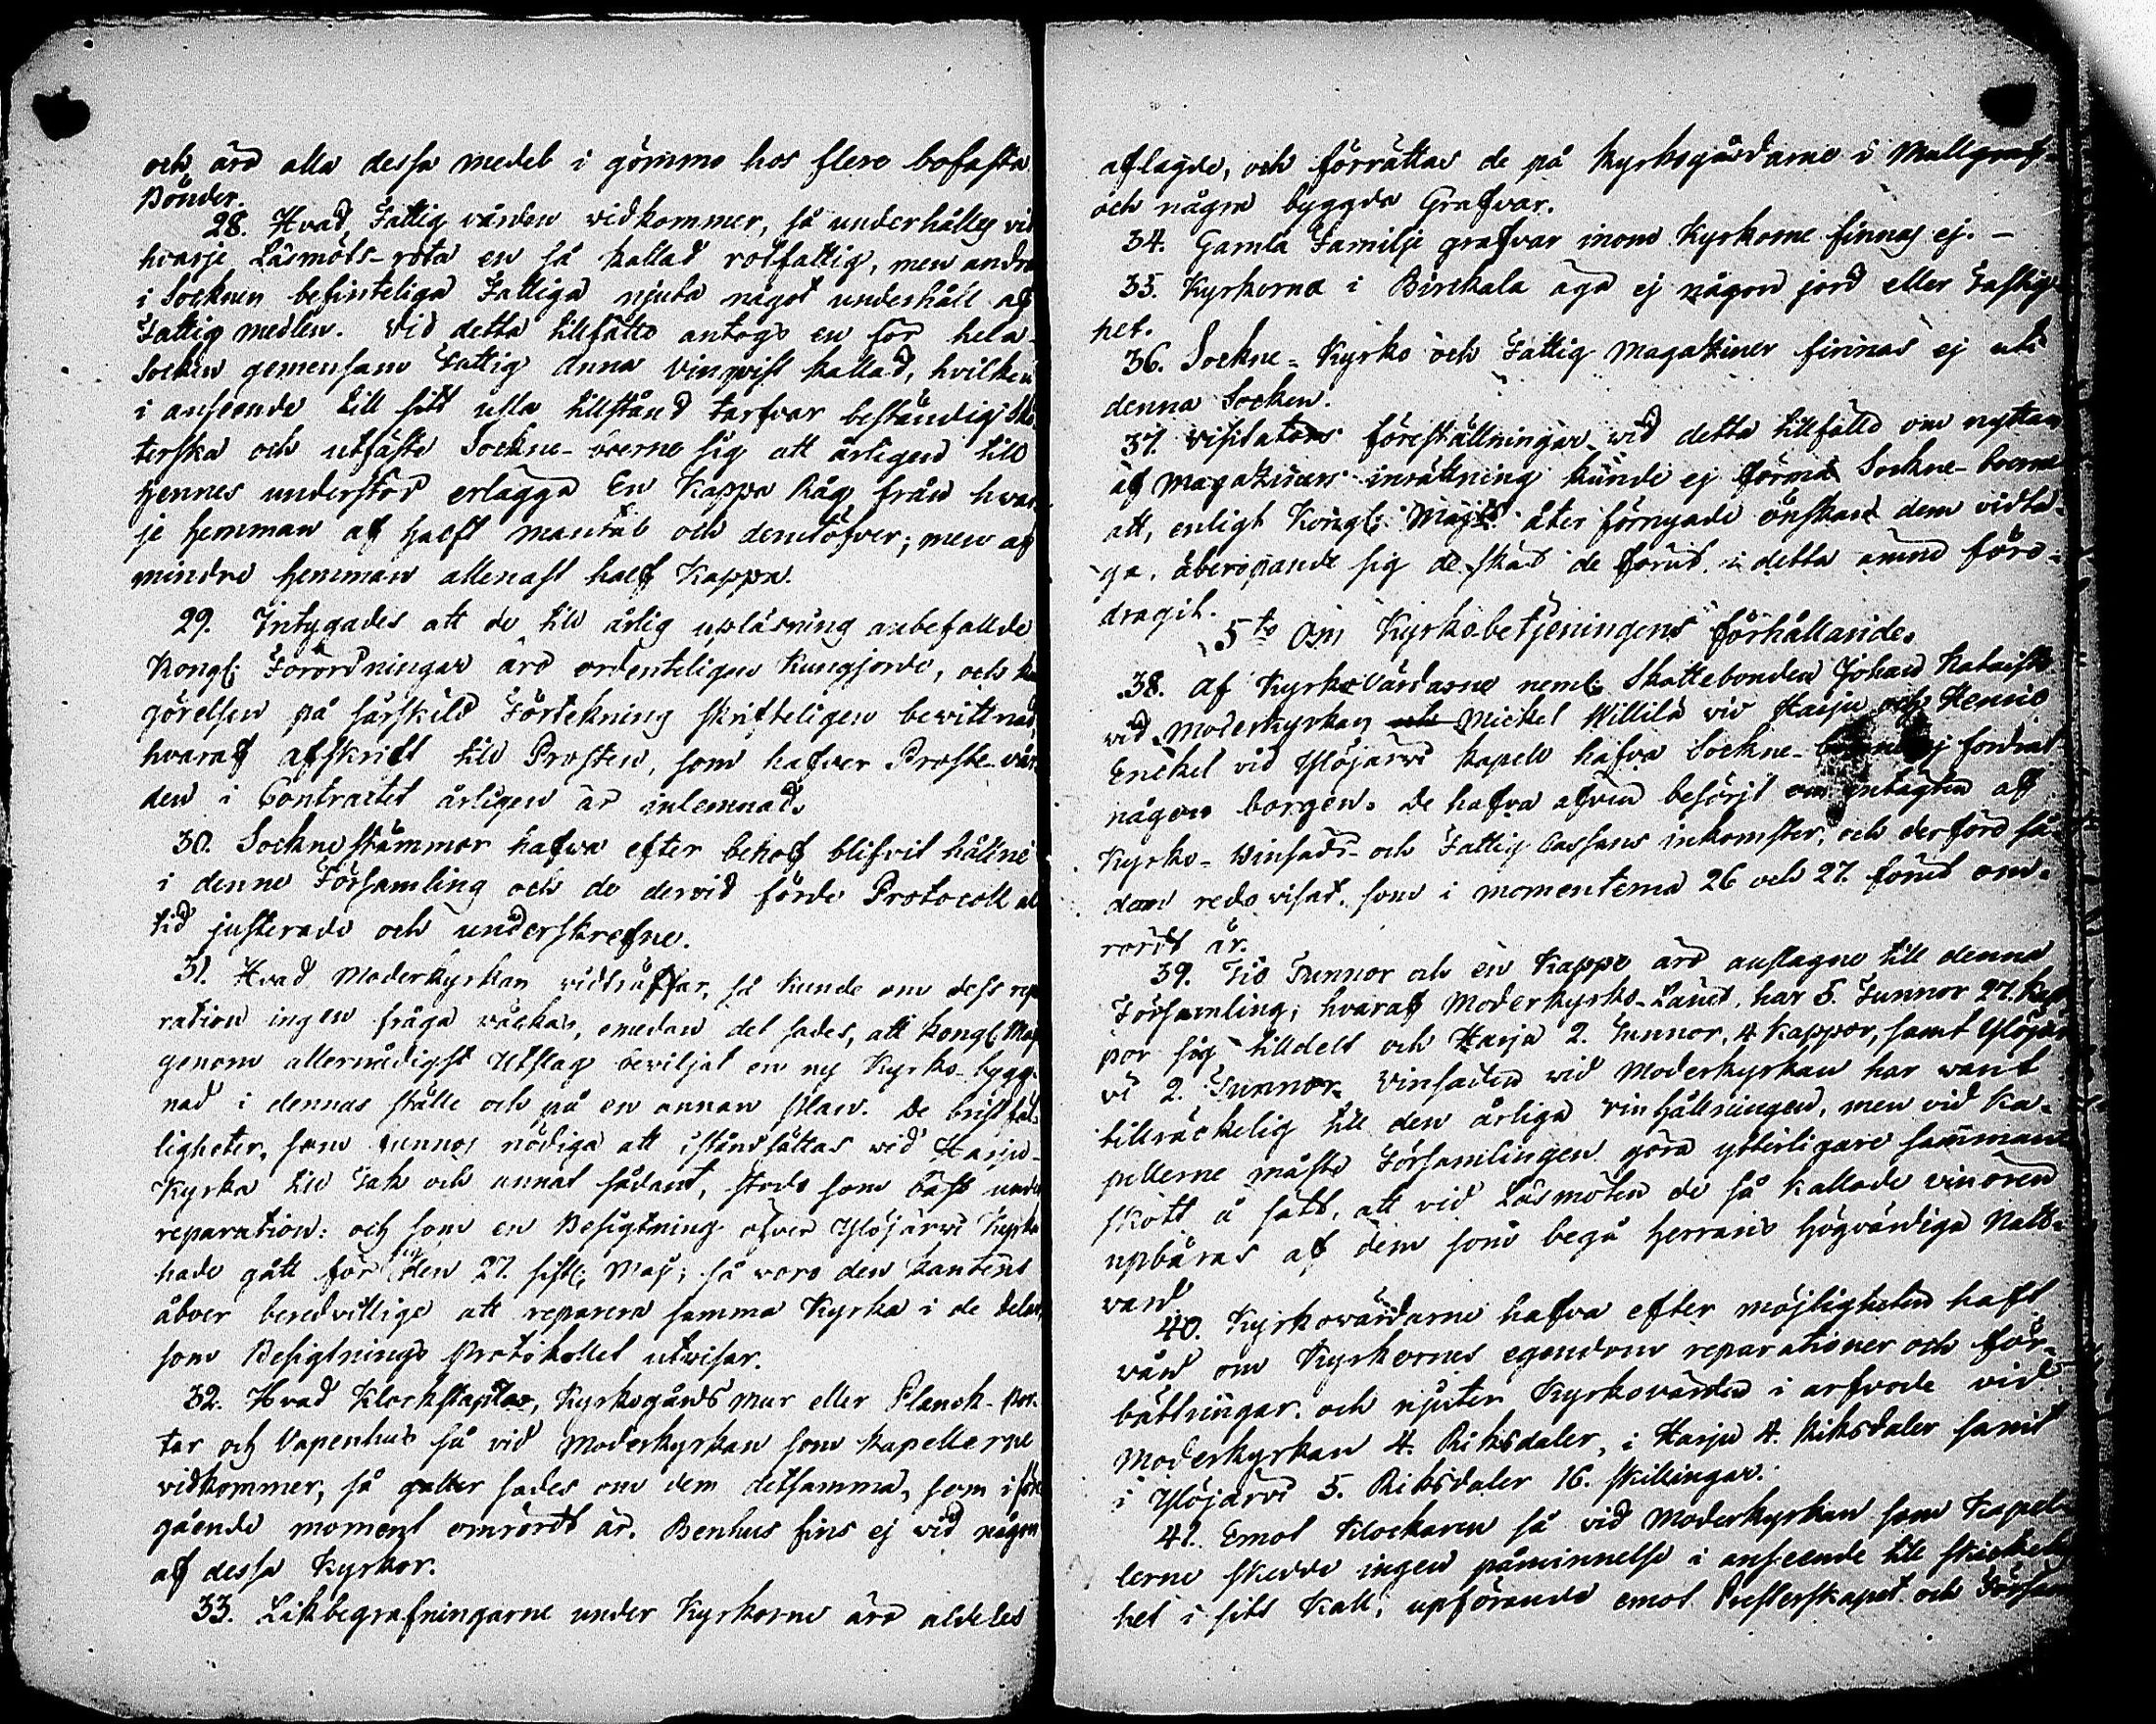 och äro alla dessa medel i gömmo hos flere bofasta
Bönder.
28. Hvad Fattig vården vidkommer, så underhålles vid
hvarje Läsmöts-rota en så kallad rotfattig, men andra
i Socknen befinteliga Fattiga njuta något underhåll af
Fattig medlen. Vid detta tillfälle antogs en för hela
Socken gemensam Fattig Anna Vinqvist kallad, hvilken
i anseende till sitt usla tillstånd tarfvar beständig Skö
terska och utfäste Sockne-boerne sig att årligen till
hennes understöd erlägga En Kappa Råg från hvar
je hemman af halft mantal och derutöfver; men af
mindre hemman allenast half Kappa.
29. Intygades att de till årlig upläsning anbefallde
Kongl: Förordningar äro ordenteligen kungjorde, och kun
görelsen på särskild Förtekning skrifteligen bevittnad,
hvaraf afskrift till Prosten, som hafver Proste-vår
den i Contractet årligen är inlemnad.
30. Sockne stämmor hafva efter behof blifvit hållne
i denne Församling och de dervid förde Protocoll al
tid justerade och underskrefne.
31. Hvad Moderkyrkan vidträffar, så kunde om dess repa
ration ingen fråga väckas, emedan det sades, att Kongl. Maj
genom allernådigst Utslag beviljat en ny Kyrko-bygg-
nad i dennas ställe och på en annan plan. De bristfäl-
ligheter, som funnos nödiga att iståndsättas vid Harju-
Kyrka till Tak och annat sådant, stode som bäst under
reparation: och som en Besigtning öfver Ylöjärvi Kyrka
hade gått för sig den 27. sistl: Maj; så voro den kantens
åboer beredvillige att reparera samma Kyrka i de delar,
som Besigtnings Protokollet utvisar.
32. Hvad Klockstaplar, Kyrkogårds mur eller Planck-por-
tar och Vapenhus så vid Moderkyrkan som kapellerne
vidkommer, så gäller sades om dem detsamma, som i före
gående moment omrördt är. Benhus fins ej vid någon
af dessa Kyrkor.
33. Likbegrafningarne under Kyrkorne äro aldeles
aflagde, och förrättas de på Kyrkogårdarne i Mullgraf-
och några byggda Grafvar.
34. Gamla Familje grafvar inom Kyrkorne finnas ej. —
35. Kyrkorna i Birckala äga ej någon jord eller Fastig-
het.
36. Sockne- Kyrko och Fattig Magaziner finnas ej uti
denna Socken.
37. Visitators föreställningar vid detta tillfälle om nyttan
af Magaziners inrättning kunde ej förmå Sockne-boerne
att, enligt Kongl: Majts åter förnyade önskan dem vidta-
ga, åberopande sig de skäl de förut i detta ämne före-
dragit.
5to Om Kyrkobetjeningens förhållande.
38. Af Kyrkovärdarne neml: Skattebonden Johan
vid Moderkyrkan och Mickel Willilä vid Harju och Henric
Enckel vid Ylöjärvi Kapell hafva Sockne- ej fordrat
någon borgen. De hafva äfven besörjt om intägten af
Kyrko- Vinsäds- och Fattig Cassans inkomster, och derföre så-
dan redovisat, som i momenterna 26 och 27. förut om-
rördt är.
39. Tio Tunnor och en Kappe äro anslagne till denna
Församling; hvaraf Moderkyrko-Länet, har 5. Tunnor 27. Kap
por sig tilldelt och Harju 2. Tunnor, 4 Kappor, samt Ylöjär
vi 2. Tunnor. Vinsäden vid Moderkyrkan har varit
tillräckelig till den årliga vinhållningen, men vid Ka-
pellerne måste Församlingen göra ytterligare samman
skott å sätt, att vid Läsmöten de så kallade vinören
upbäras af dem som begå Herrans Högvärdiga Natt-
vard
40. Kyrkovärdarne hafva efter möjligheten haft
vård om Kyrkornes egendom reparationer och för-
bättringar, och njuter Kyrkovärden i arfvode vid
Moderkyrkan 4. Riksdaler, i Harju 4. Riksdaler samt
i Ylöjärvi 5. Riksdaler 16. skillingar.
41. Emot Klockaren så vid Moderkyrkan som Kapel-
lerne skedde ingen påminnelse i anseende till skickelig
het i sitt Kall, upförande emot Presterskapet och Försam